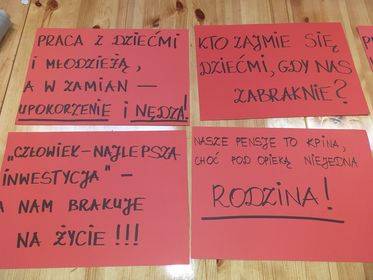 PRACA Z DZIEĆMI
I MŁODZIEŻĄ,
A W ZAMIAN —
UPOKORZENIE I NĘDZA!
KTO ZAJMIE SIĘ
DZIEĆMI, GDY NAS
ZABRAKNIE?
„CZŁOWIEK–NAJLEPSZA
INWESTYCJA" –
A NAM BRAKUJE
NA ŻYCIE !!!
NASZE PENSJE TO KPINA,
CHOĆ POD OPIEKĄ NIEJEDNA
RODZINA!